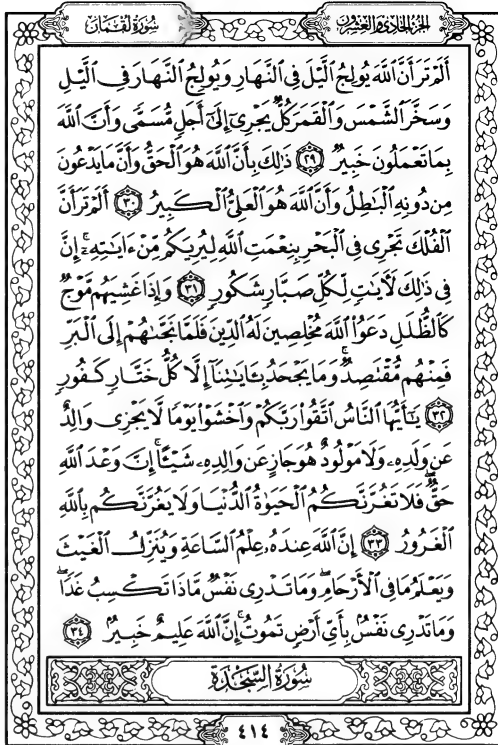 سُورَةُ لُقْمَان
الجُزْءُ الحَادِي وَالعِشْرُون
أَلَمْ تَرَ أَنَّ ٱللَّهَ يُولِجُ ٱلَّيْلَ فِى ٱلنَّهَارِ وَيُولِجُ ٱلنَّهَارَ فِى ٱلَّيْلِ
وَسَخَّرَ ٱلشَّمْسَ وَٱلْقَمَرَ كُلٌّ يَجْرِىٓ إِلَىٰٓ أَجَلٍ مُّسَمًّى وَأَنَّ ٱللَّهَ
بِمَا تَعْمَلُونَ خَبِيرٌ ٢٩ ذَٰلِكَ بِأَنَّ ٱللَّهَ هُوَ ٱلْحَقُّ وَأَنَّ مَا يَدْعُونَ
مِن دُونِهِ ٱلْبَٰطِلُ وَأَنَّ ٱللَّهَ هُوَ ٱلْعَلِىُّ ٱلْكَبِيرُ ٣٠ أَلَمْ تَرَ أَنَّ
ٱلْفُلْكَ تَجْرِى فِى ٱلْبَحْرِ بِنِعْمَتِ ٱللَّهِ لِيُرِيَكُم مِّنْ ءَايَٰتِهِۦٓ ۚ إِنَّ
فِى ذَٰلِكَ لَءَايَٰتٍ لِّكُلِّ صَبَّارٍ شَكُورٍ ٣١ وَإِذَا غَشِيَهُم مَّوْجٌ
كَٱلظُّلَلِ دَعَوُا۟ ٱللَّهَ مُخْلِصِينَ لَهُ ٱلدِّينَ فَلَمَّا نَجَّىٰهُمْ إِلَى ٱلْبَرِّ
فَمِنْهُم مُّقْتَصِدٌ ۚ وَمَا يَجْحَدُ بِـَٔايَٰتِنَآ إِلَّا كُلُّ خَتَّارٍ كَفُورٍ
٣٢ يَٰٓأَيُّهَا ٱلنَّاسُ ٱتَّقُوا۟ رَبَّكُمْ وَٱخْشَوْا۟ يَوْمًا لَّا يَجْزِى وَالِدٌ
عَن وَلَدِهِۦ وَلَا مَوْلُودٌ هُوَ جَازٍ عَن وَالِدِهِۦ شَيْـًٔا ۚ إِنَّ وَعْدَ ٱللَّهِ
حَقٌّ ۖ فَلَا تَغُرَّنَّكُمُ ٱلْحَيَوٰةُ ٱلدُّنْيَا وَلَا يَغُرَّنَّكُم بِٱللَّهِ
ٱلْغَرُورُ ٣٣ إِنَّ ٱللَّهَ عِندَهُۥ عِلْمُ ٱلسَّاعَةِ وَيُنَزِّلُ ٱلْغَيْثَ
وَيَعْلَمُ مَا فِى ٱلْأَرْحَامِ ۖ وَمَا تَدْرِى نَفْسٌ مَّاذَا تَكْسِبُ غَدًا ۖ
وَمَا تَدْرِى نَفْسٌۢ بِأَىِّ أَرْضٍ تَمُوتُ ۚ إِنَّ ٱللَّهَ عَلِيمٌ خَبِيرٌۢ ٣٤
سُورَةُ السَّجْدَةِ
٤١٤